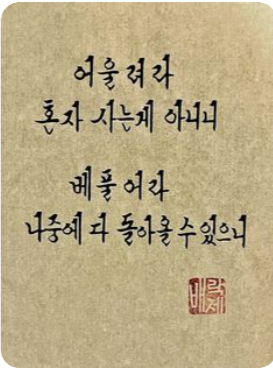 어울려라
혼자 사는게 아니니
베풀어라
나중에 다 돌아올 수 있으니